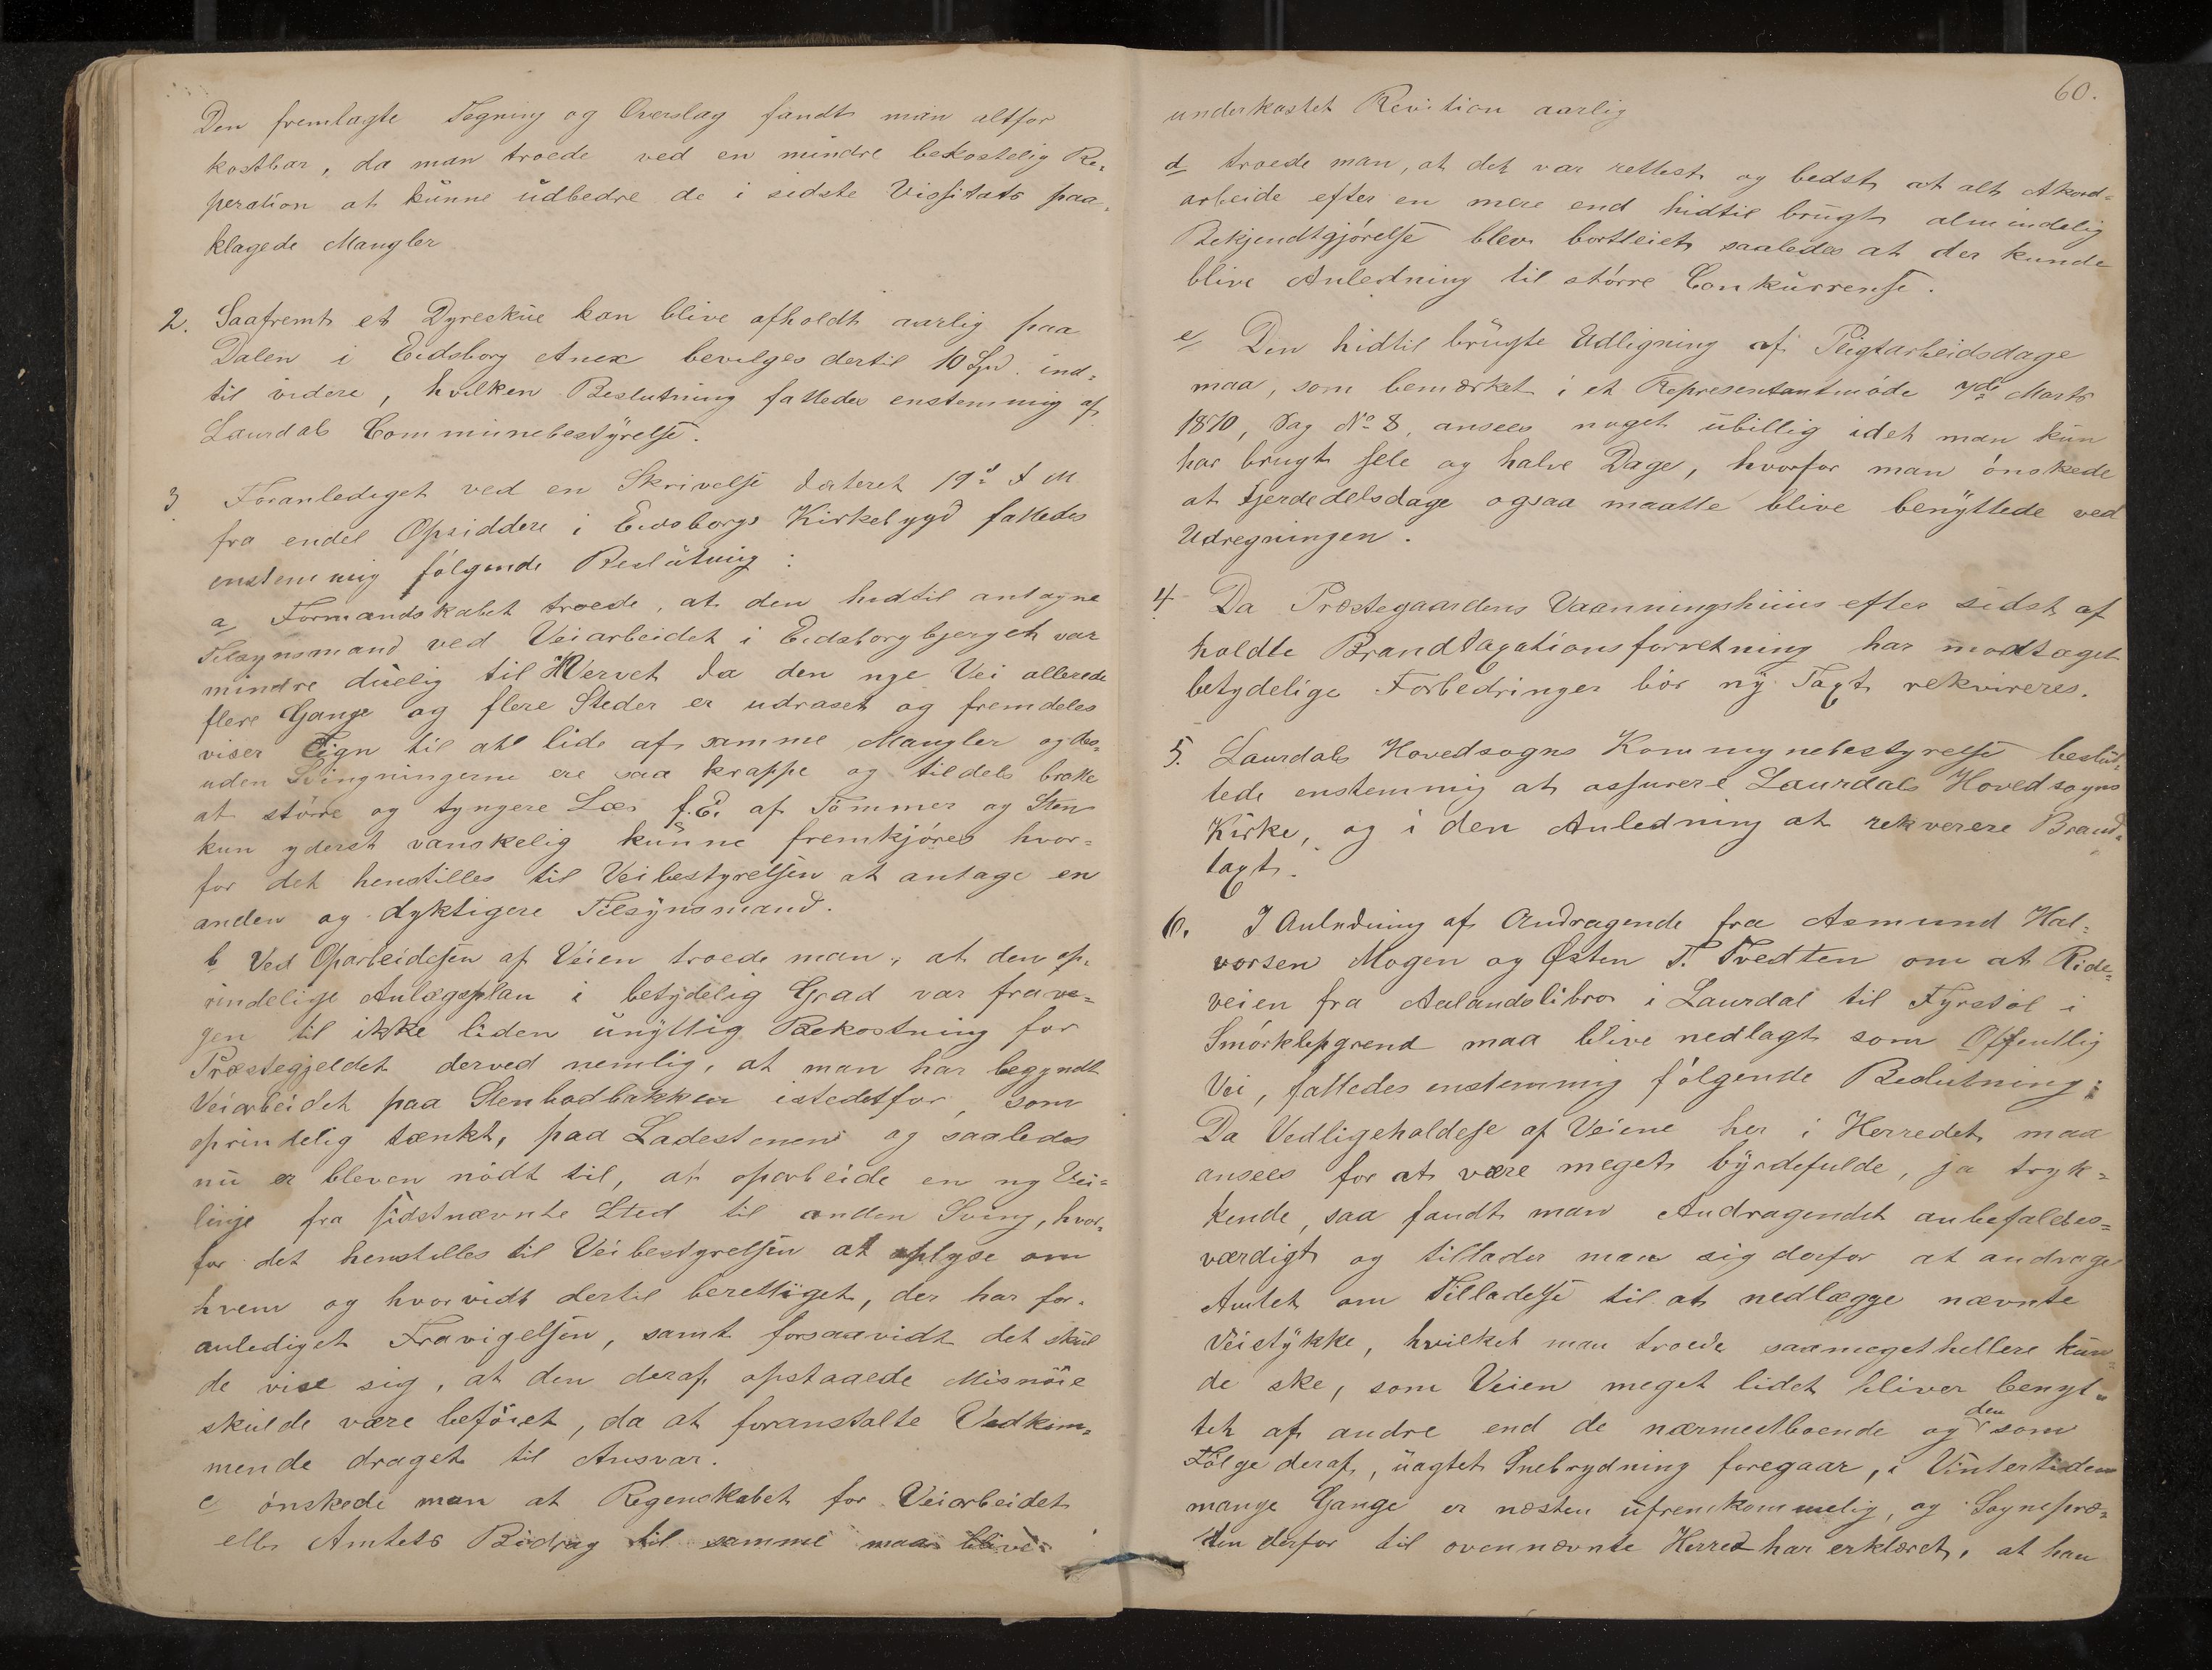 Den fremlagte Tegning og Overslag fandt man altfor
kostbar, da man troede ved en mindre bekostelig Re-
peration at kunne udbedre de i sidste Vissitats paa-
klagede Mangler
2. Saafremt et Dyreskue kan blive afholdt aarlig paa
Dalen i Eidsborg Anex bevilges dertil 10 Spd. ind-
til videre, hvilken Beslutning fattedes enstemmig af
Laurdals Communebestyrelse.
3 Foranlediget ved en Skrivelse dateret 19d. d. M.
fra endel Opsiddere i Eidsborgs Kirkebygd fattedes
enstemmig følgende Beslutning:
a Formandskabet troede, at den hidtil antagne
Tilsynsmand ved Veiarbeidet i Eidsborgbjerget var
mindre duelig til Hvervet da den nye Vei allerede
flere Gange og flere Steder er udraset og fremdeles
viser Tign til at lide af samme Mangler ogdes-
uden Svingningerne ere saa krappe og tildels bratte
at større og tyngere Læs f. Ex. af Tømmer og Sten
kun yderst vanskelig kunne fremkjøres hvor-
for det henstilles til Veibestyrelsen at antage en
anden og dyktigere Tilsynsmand.
b Ved Oparbeidelsen af Veien troede man, at den op-
rindelige Anlægsplan i betydelig Grad var frave-
gen til ikke liden unyttig Bekostning for
Præstegjeldet derved nemlig, at man har begyndt
Veiarbeidet paa Stenbodbakken istedetfor, som
oprindelig tænkt, paa Ladestenen og saaledes
nu er bleven nødt til, at oparbeide en ny Vei-
linje fra sidstnævnte Sted til anden Sving, hvor-
for det henstilles til Veibestyrelsen at oplyse om
hvem og hvorvidt dertil berettiget, der har for-
anlediget Fravigelsen, samt forsaavidt det skul
de vise sig, at den deraf opstaaede Misnöie
skulde være beføiet, da at foranstalte Vedkom-
mende draget til Ansvar.
c ønskede man at Regenskabet for Veiarbeidet
eller Amtets Bidrag til samme maa blive
60.
underkastet Revition aarlig
d troede man, at det var rettest og bedst at alt Akord-
arbeide efter en mere end hidtil brugt almindelig
Bekjendtgjørelse blev bortleiet saaledes at der kunde
blive Anledning til større Conkurrense.
e Den hidtil brugte Udligning af Pligtarbeidsdage
maa, som bemærket i et Representantmøde 7de Marts
1870, Sag No 8, ansees noget ubillig idet man kun
har brugt hele og halve Dage, hvorfor man ønskede
at Fjerdedelsdage ogsaa maatte blive benyttede ved
Udregningen.
4 Da Præstegaardens Vaanningshuus efter sidst af
holdte Brandtaxationsforretning har modtaget
betydelige Forbedringer bør ny Taxt rekvireres.
5. Laurdals Hovedsogns Kommynebestyrelse beslut-
tede enstemmig at assurere Laurdals Hovedsogns
Kirke, og i den Anledning at rekverere Brand-
taxt.
6. I Anledning af Andragende fra Asmund Hal-
vorsen Mogen og Østen T. Tvedten om at Ride-
veien fra Aalandslibro i Laurdal til Fyrisdal i
Smørklepgrend maa blive nedlagt som Offentlig
Vei, fattedes enstemmig følgende Beslutning:
Da Vedligeholdelse af Veiene her i Herredet maa
ansees for at være meget byrdefulde, ja tryk-
kende, saa fandt man Andragendet anbefales-
værdigt og tillader man sig derfor at andrage
Amtet om Tilladelse til at nedlægge nævnte
Veistykke, hvilket man troede saameget hellere kun-
de ske, som Veien meget lidet bliver benyt-
tet af andre end de nærmestboende og den som
Følge deraf, uagtet Snebrydning foregaar, i Vintertiden
mange Gange er næsten ufremkommelig, og Sognepræ-
sten derfor til ovennævnte Herred har erklæret, at han